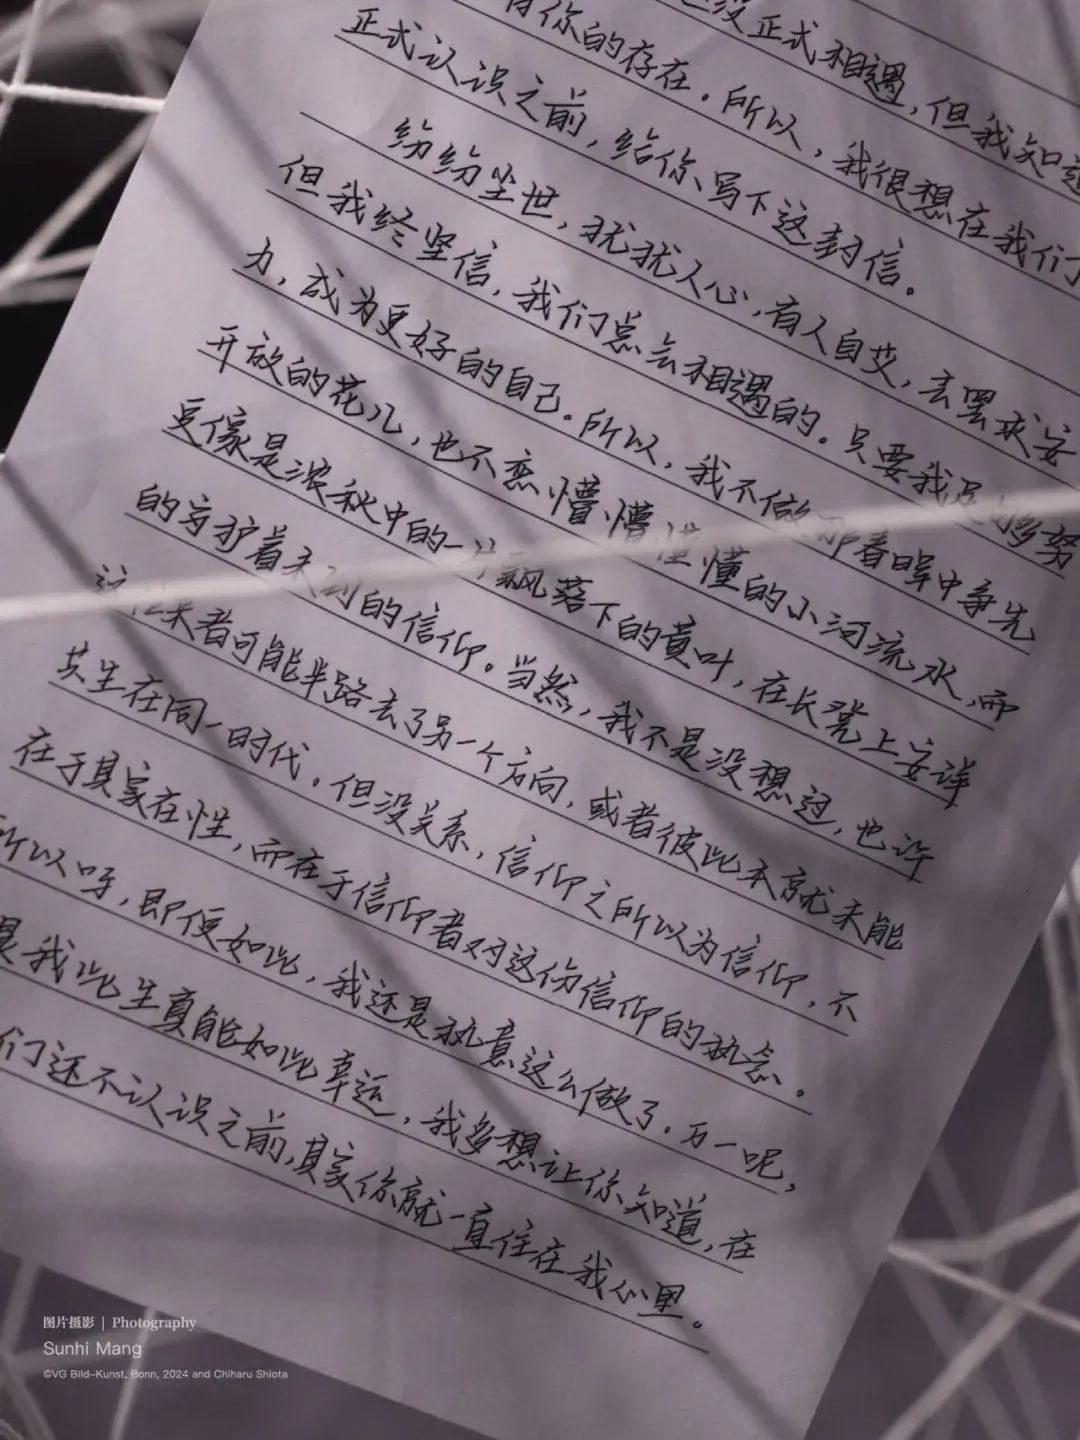 没正式相遇，但我知道
你的存在。所以，我很想在我们
正式认识之前，给你写下这封信。
纷纷尘世，扰扰人心，有人自艾，去罢求安
但我终坚信，我们总会相遇的。只要我足够努
力，成为更好的自己。所以，我不做那春晖中争先
开放的花儿，也不恋懵懵懂懂的小河流水，而
更像是浓秋中的一片飘落下的黄叶，在长凳上安详
的守护着未到的信仰。当然，我不是没想过，也许
这位来者可能半路去了另一个方向，或者彼此本就未能
共生在同一时代。但没关系，信仰之所以为信仰，不
在于其实在性，而在于信仰者对这份信仰的执念。
所以呀，即便如此，我还是执意这么做了。万一呢，
是我此生真能如此幸运，我多想让你知道，在
们还不认识之前，其实你就一直住在我心里。
图片摄影 | Photography
Sunhi Mang
©VG Bild-Kunst, Bonn, 2024 and Chiharu Shiota